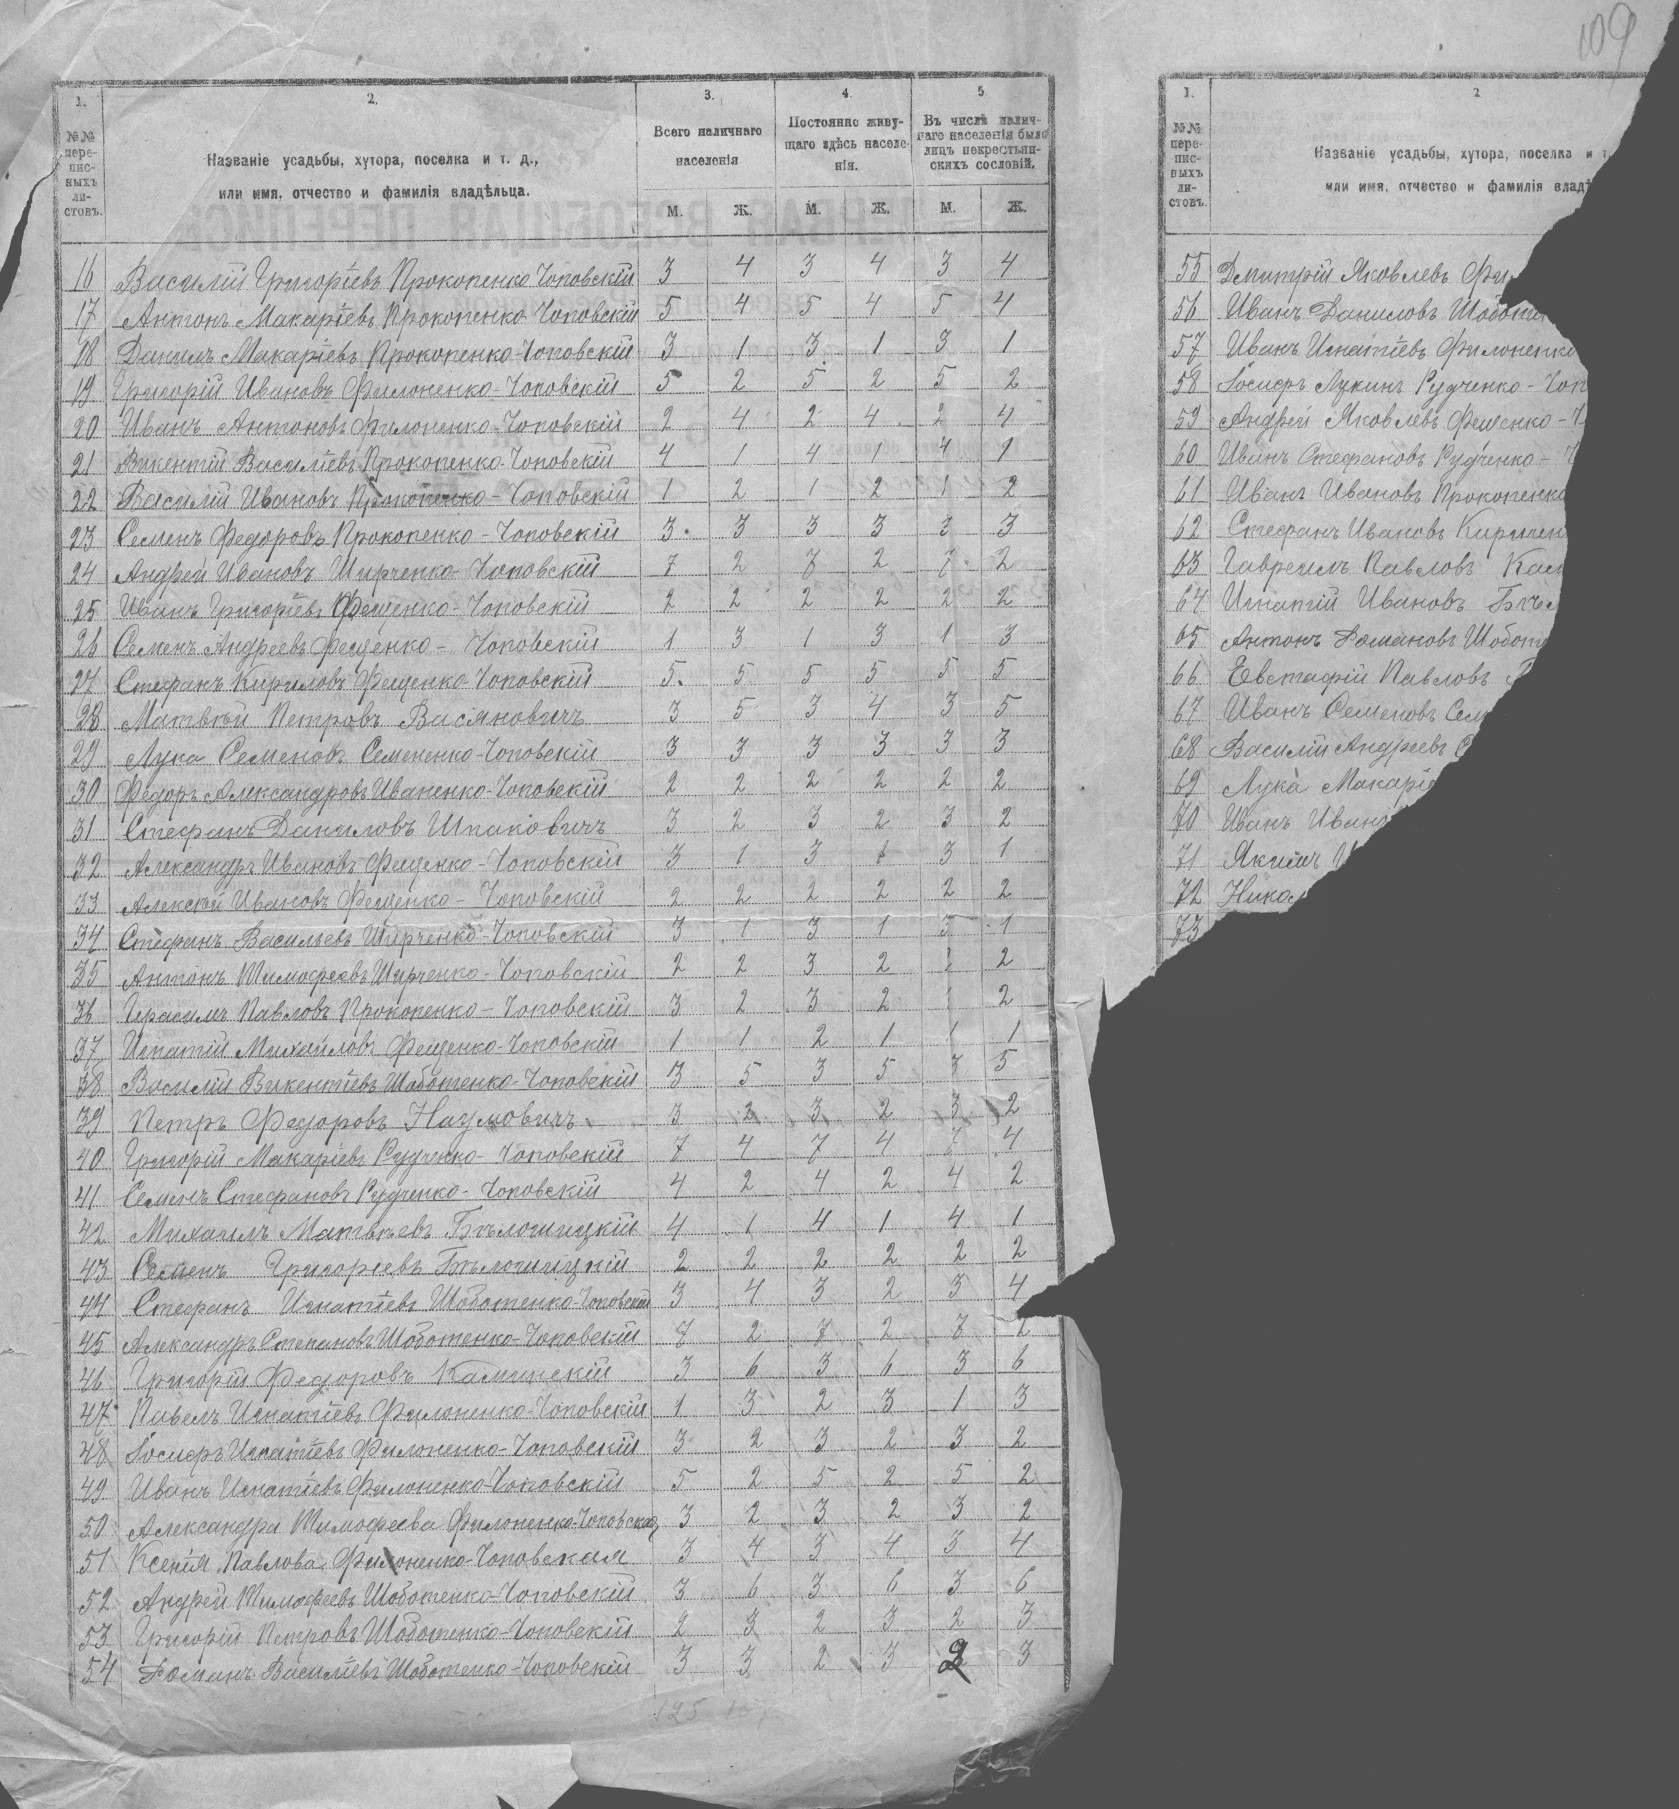 109
1.
2.
3.
4.
5
№№ пере-
пис-
ныхъ
ли-
стовъ.
Названіе усадьбы, хутора, поселка и т. д.,
или имя, отчество и фамилія владѣльца.
Всего наличнаго
населенія
Постоянно живу-
щаго здѣсь населе-
нія.
Въ числѣ налич-
наго населенія было
лицъ некрестьян-
скихъ сословій.
М. Ж. М. Ж. М. Ж.
16 Василій Григоріевъ Прокопенко Чоповскій 3 4 3 4 3 4
17 Антонъ Макаріевъ Прокопенко Чоповскій 5 4 5 4 5 4
18 Данилъ Макаріевъ Прокопенко-Чоповскій 3 1 3 1 3 1
19 Григорій Ивановъ Филоненко-Чоповскій 5 2 5 2 5 2
20 Иванъ Антоновъ Филоненко-Чоповскій 2 4 2 4 2 4
21 Викентій Василіевъ Прокопенко-Чоповскій 4 1 4 1 4 1
22 Василій Ивановъ Прокопенко-Чоповскій 1 2 1 2 1 2
23 Семенъ Федоровъ Прокопенко-Чоповскій 3 3 3 3 3 3
24 Андрей Ивановъ Ширченко-Чоповскій 7 2 7 2 7 2
25 Иванъ Григоріевъ Фещенко-Чоповскій 2 2 2 2 2 2
26 Семенъ Андреевъ Фещенко-Чоповскій 1 3 1 3 1 3
27 Стефанъ Кириловъ Фещенко Чоповскій 5 5 5 5 5 5
28 Матвѣй Петровъ Васяновичъ 3 5 3 4 3 5
29 Лука Семеновъ Семененко-Чоповскій 3 3 3 3 3 3
30 Федоръ Александровъ Иваненко-Чоповскій 2 2 2 2 2 2
31 Стефанъ Даниловъ Шпаковичъ 3 2 3 2 3 2
32 Александръ Ивановъ Фещенко-Чоповскій 3 1 3 1 3 1
33 Алексѣй Ивановъ Фещенко-Чоповскій 2 2 2 2 2 2
34 Стефанъ Васильевъ Ширченко-Чоповскій 3 1 3 1 3 1
35 Антонъ Тимофеевъ Ширченко-Чоповскій 2 2 3 2 2
36 Герасимъ Павловъ Прокопенко-Чоповскій 3 2 3 2 1 2
37 Игнатій Михайловъ Фещенко-Чоповскій 1 1 2 1 1 1
38 Василій Викентіевъ Шоботенко-Чоповскій 3 5 3 5 3 5
39 Петръ Федоровъ Наумовичъ 3 2 3 2 3 2
40 Григорій Макаріевъ Рудченко-Чоповскій 7 4 7 4 7 4
41 Семенъ Стефановъ Рудченко-Чоповскій 4 2 4 2 4 2
42 Михаилъ Матвѣевъ Бѣлошицкій 4 1 4 1 4 1
43 Семенъ Григоріевъ Бѣлошицкій 2 2 2 2 2 2
44 Стефанъ Игнатіевъ Шоботенко-Чоповскій 3 4 3 2 3 4
45 Александръ Степановъ Шоботенко-Чоповскій 7 2 7 2 7 2
46 Григорій Федоровъ Каминскій 3 6 3 6 3 6
47 Павелъ Игнатіевъ Филоненко-Чоповскій 1 3 2 3 1 3
48 Іосифъ Игнатіевъ Филоненко-Чоповскій 3 2 3 2 3 2
49 Иванъ Игнатіевъ Филоненко-Чоповскій 5 2 5 2 5 2
50 Александра Тимофеева Филоненко-Чоповская 3 2 3 2 3 2
51 Ксенія Павлова Филоненко-Чоповская 3 4 3 4 3 4
52 Андрей Тимофеевъ Шоботенко-Чоповскій 3 6 3 6 3 6
53 Григорій Петровъ Шоботенко-Чоповскій 2 3 2 3 2 3
54 Романъ Василіевъ Шоботенко-Чоповскій 3 3 2 3 2 3
125
1.
2
№№
пере-
пис-
ныхъ
ли-
стовъ.
Названіе усадьбы, хутора, поселка и т.
или имя, отчество и фамилія владѣ
55 Дмитрій Яковлевъ Фил
56 Иванъ Даниловъ Шоботе
57 Иванъ Игнатіевъ Филоненко
58 Іосифъ Лукинъ Рудченко-Чоп
59 Андрей Яковлевъ Фещенко-Ч
60 Иванъ Стефановъ Рудченко-Ч
61 Иванъ Ивановъ Прокопенко
62 Стефанъ Ивановъ Кириллен
63 Гавриилъ Павловъ Кам
64 Игнатій Ивановъ Бѣл
65 Антонъ Романовъ Шобот
66 Евстафій Павловъ
67 Иванъ Семеновъ Сем
68 Василій Андреевъ С
69 Лука Макаріе
70 Иванъ Ивано
71 Якимъ И
72 Никол
73